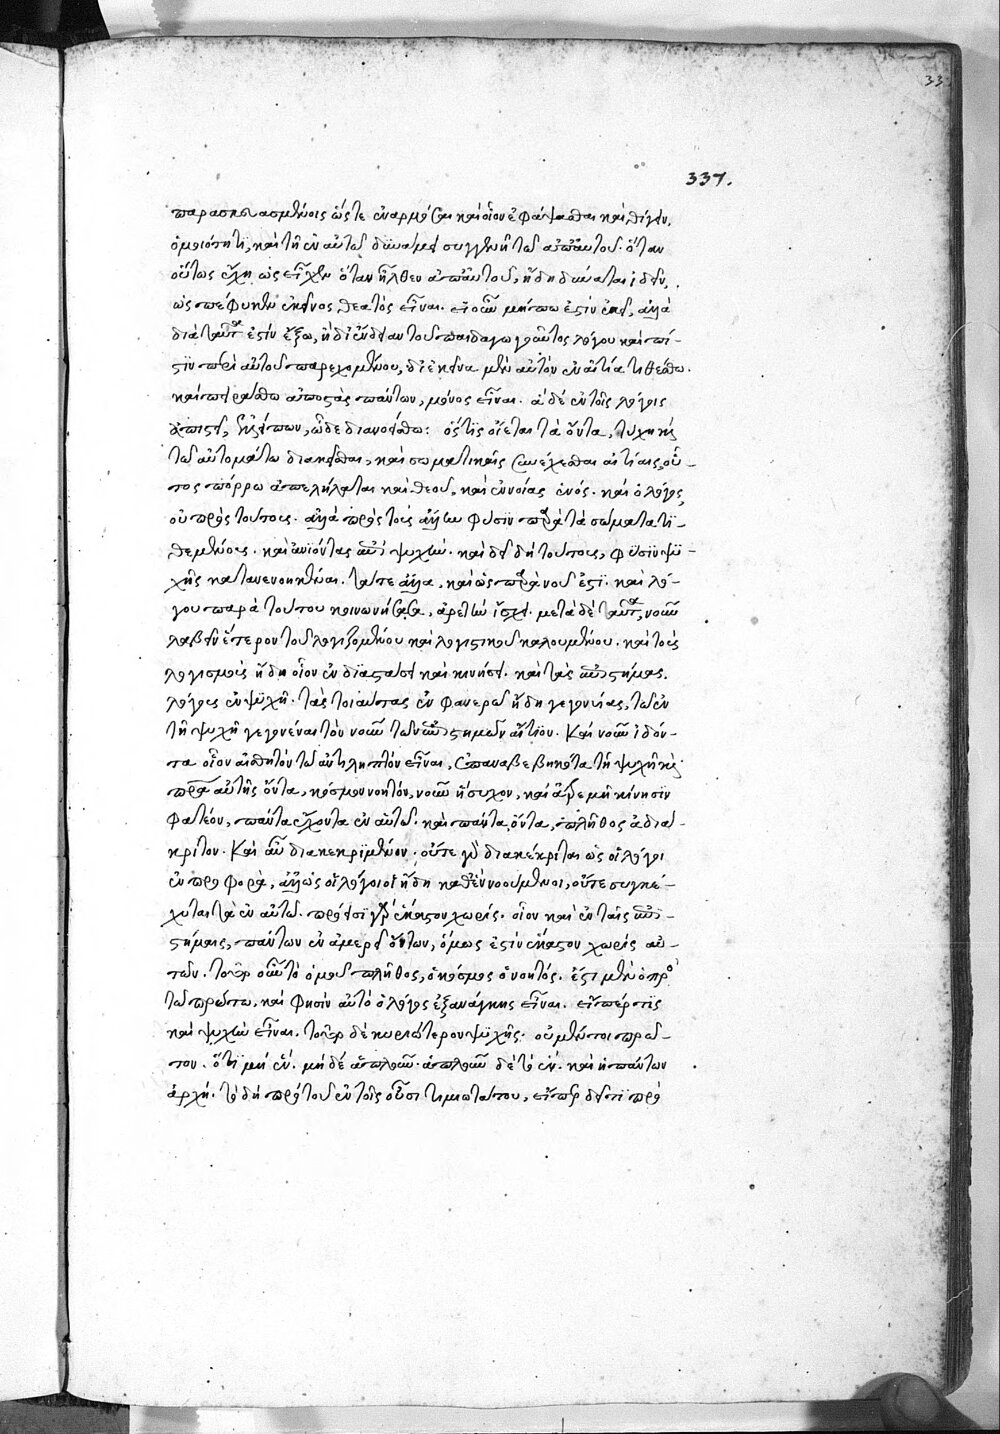 337.
παρασκευασμένοις ὥστε ἐναρμόσαι καὶ οἷον ἐφάψασθαι καὶ θίγειν,
ὁμοιότητι, καὶ τῇ ἐν αὐτῷ δυνάμει συγγενῆ τῷ ἀπ' αὐτοῦ· ὅταν
οὕτως ἔχῃ ὡς εἶχεν ὅταν ἦλθεν ἀπ' αὐτοῦ, ἤδη δύναται ἰδεῖν,
ὡς πέφυκεν ἐκεῖνος θεατὸς εἶναι. εἰ οὖν μήπω ἐστὶν ἐκεῖ, ἀλλὰ
διὰ ταῦτα ἐστὶν ἔξω, ἢ δι' ἔνδειαν τοῦ παιδαγωγοῦντος λόγου καὶ πί-
στιν περὶ αὐτοῦ παρεχομένου, δι' ἐκεῖνα μὲν αὐτὸν ἐν αἰτία τιθέσθω.
καὶ πειράσθω ἀποστὰς πάντων, μόνος εἶναι. ἃ δὲ ἐν τοῖς λόγοις
ἀπιστεῖ, ἐλλείπων, ὧδε διανοείσθω: ὅστις οἴεται τὰ ὄντα, τύχη καὶ
τῷ αὐτομάτω διοικεῖσθαι, καὶ σωματικαῖς συνέχεσθαι αἰτίαις, οὗ-
τος πόρρω ἀπελήλαται καὶ θεοῦ, καὶ ἐννοίας ἑνός. καὶ ὁ λόγος
οὐ πρὸς τούτους. ἀλλὰ πρὸς τοὺς ἄλλην φύσιν παρὰ τὰ σώματα τι-
θεμένους. καὶ ἀνιόντας ἐπὶ ψυχήν. καὶ δεῖ δὴ τούτους, φύσιν ψυ-
χῆς κατανενοηκέναι. τά τε ἄλλα, καὶ ὡς παρὰ νοῦ ἐστι. καὶ λό-
γου παρὰ τούτου κοινωνήσασα, ἀρετὴν ἴσχει. μετὰ δὲ ταῦτα, νοῦν
λαβεῖν ἕτερον τοῦ λογιζομένου καὶ λογιστικοῦ καλουμένου. καὶ τοὺς
λογισμοὺς ἤδη οἷον ἐν διαστάσει καὶ κινήσει. καὶ τὰς ἐπιστήμας.
λόγους ἐν ψυχῇ. τὰς τοιαύτας ἐν φανερῷ ἤδη γεγονυίας, τῷ ἐν
τῇ ψυχῇ γεγονέναι τὸν νοῦν τῶν ἐπιστημῶν αἴτιον. Καὶ νοῦν ἰδόν-
τα οἷον αἰσθητὸν τῷ ἀντιληπτὸν εἶναι, ἐπαναβεβηκότα τῇ ψυχῇ καὶ
πατέρα αὐτῆς ὄντα, κόσμον νοητόν, νοῦν ἥσυχον, καὶ ἀτρεμῆ κίνησιν
φατέον, πάντα ἔχοντα ἐν αὑτῷ. καὶ πάντα ὄντα, πλῆθος ἀδιά-
κριτον. Καὶ αὖ διακεκριμένον. οὔτε γὰρ διακέκριται ὡς οἱ λόγοι
ἐν προφορᾷ, ἀλλ' ὡς οἱ λόγοι οἱ ἤδη καθ' ἓν νοούμενοι, οὔτε συγκέ-
χυται τὰ ἐν αὐτῷ. πρόεισι γὰρ ἕκαστον χωρίς. οἷον καὶ ἐν ταῖς ἐπι-
στήμαις, πάντων ἐν ἀμερεῖ ὄντων, ὅμως ἐστὶν ἕκαστον χωρὶς αὐ-
τῶν. τοῦτο οὖν τὸ ὁμοῦ πλῆθος, ὁ κόσμος ὁ νοητός. ἔστι μὲν ὁ πρὸ
τῷ πρώτω, καί φησιν αὐτὸ ὁ λόγος ἐξανάγκης εἶναι. εἴπερ τις
καὶ ψυχὴν εἶναι. τοῦτο δὲ κυριώτερον ψυχῆς. οὐ μέντοι πρῶ-
τον. ὅτι μὴ ἕν. μὴ δὲ ἁπλοῦν. ἁπλοῦν δὲ τὸ ἕν. καὶ ἡ πάντων
ἀρχή. τὸ δὴ πρὸ τοῦ ἐν τοῖς οὖσι τιμιωτάτου, εἴπερ δεῖ τι πρὸ